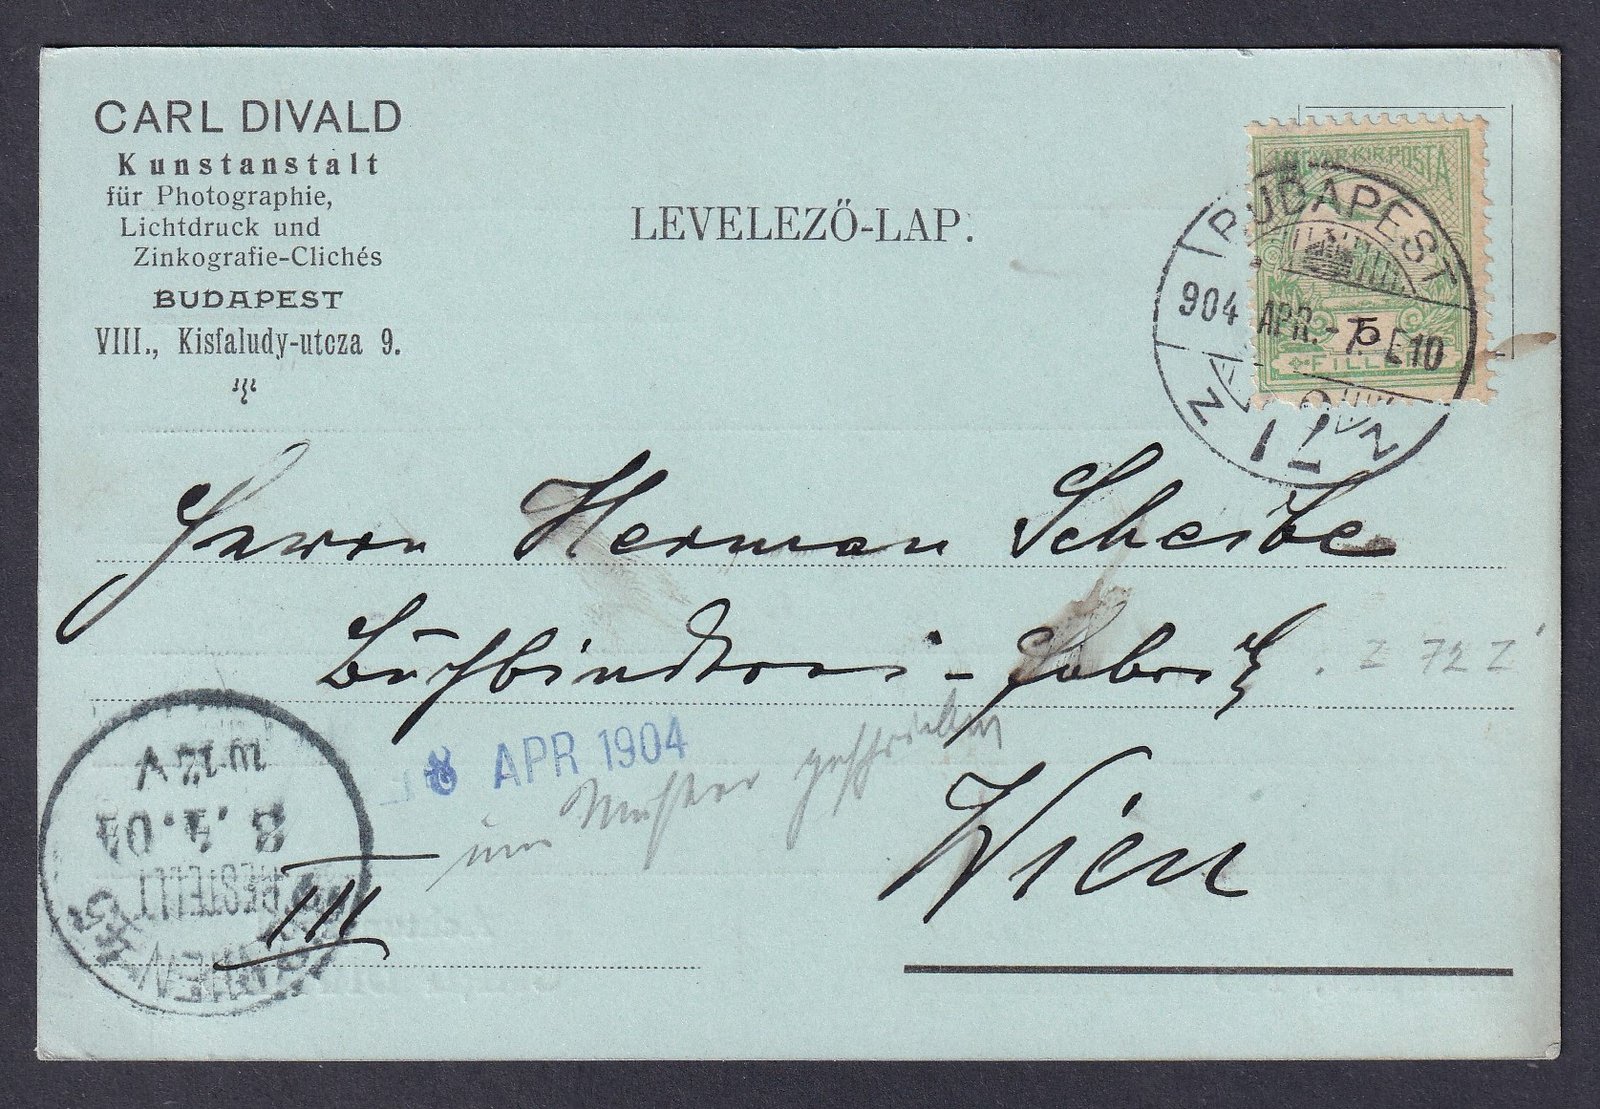 CARL DIVALD
Kunstanstalt
für Photographie,
Lichtdruck und
Zinkografie-Clichés
BUDAPEST
VIII., Kisfaludy-utcza 9.
LEVELEZŐ-LAP.
MAGYAR KIR. POSTA
5
FILLÉR
BUDAPEST
904 APR. - 7. E10
Herrn Herman Scheibe
Buchbinderei - Fabrik
Z 72 Z
8 APR 1904
um Muster geschrieben
Wien
III
WIEN
BESTELLT
8. 4. 04